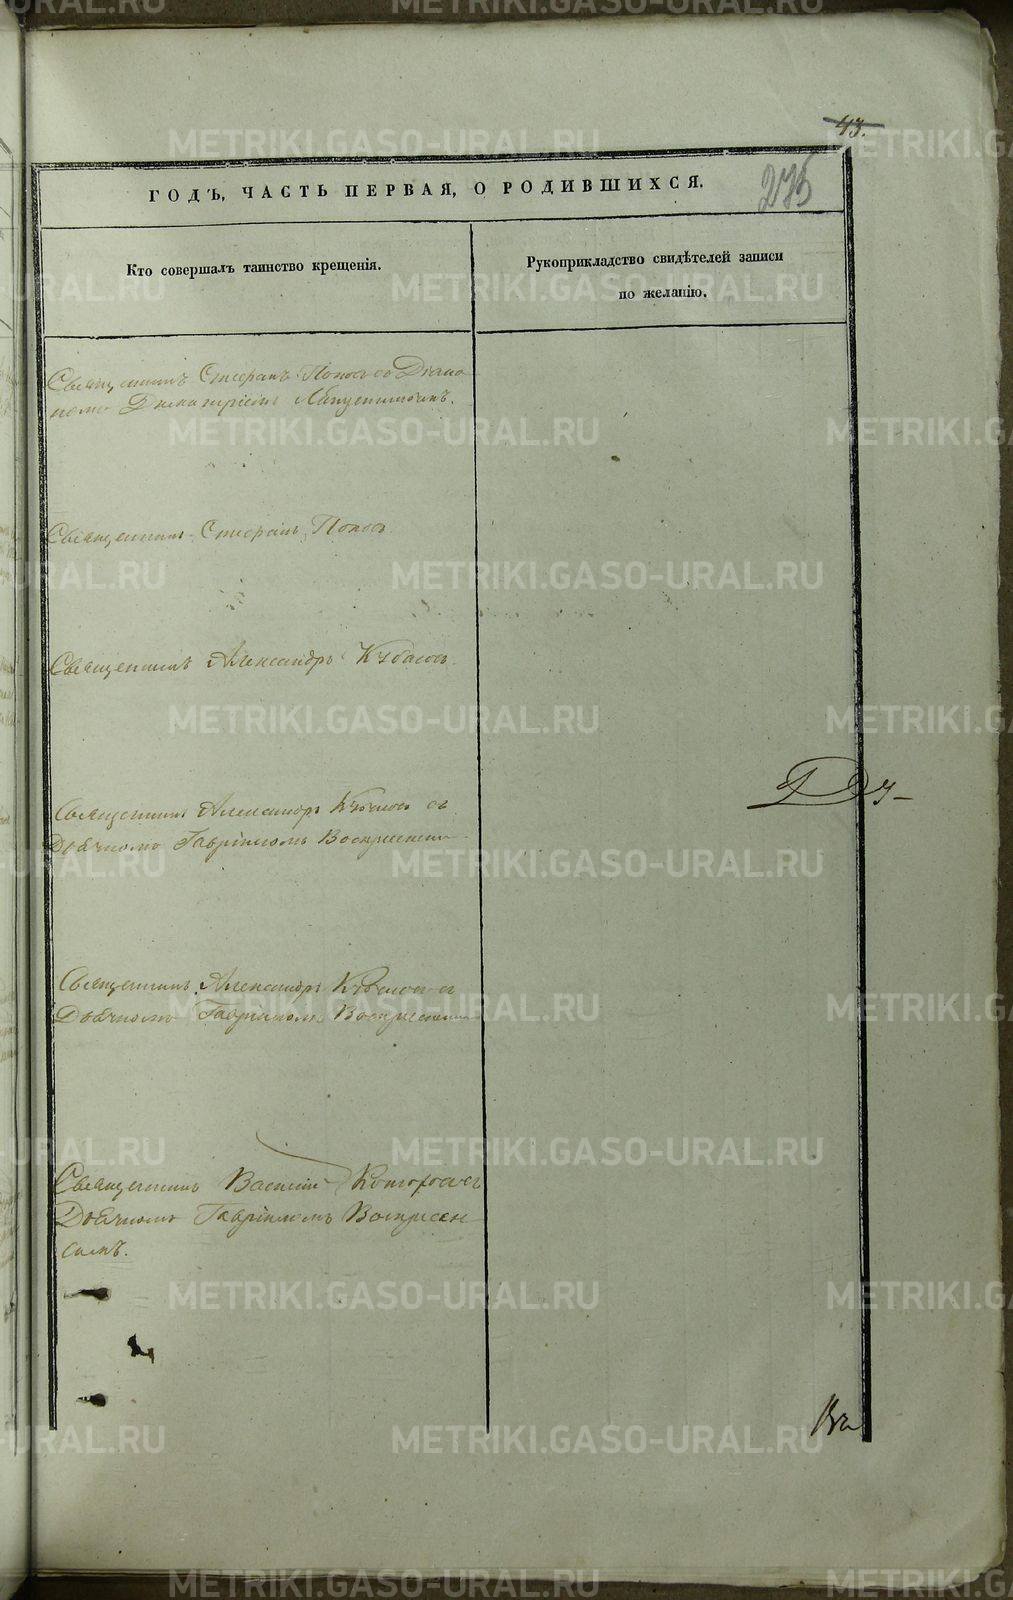 43.
275
ГОДЪ, ЧАСТЬ ПЕРВАЯ, О РОДИВШИХСЯ.
Кто совершалъ таинство крещенія.
Рукоприкладство свидѣтелей записи
по желанію.
Священникъ Стефанъ Поповъ со Діако
номъ
Священникъ Стефанъ Поповъ
Священникъ Александръ Кубасовъ
Священникъ Александръ Кубасовъ съ
Дьячкомъ Гавріиломъ Воскресенск
Священникъ Александръ Кубасовъ съ
Дьячкомъ Гавріиломъ Воскресенск
Священникъ Василій съ
Дьячкомъ Гавріиломъ Воскресен
скимъ.
METRIKI.GASO-URAL.RU